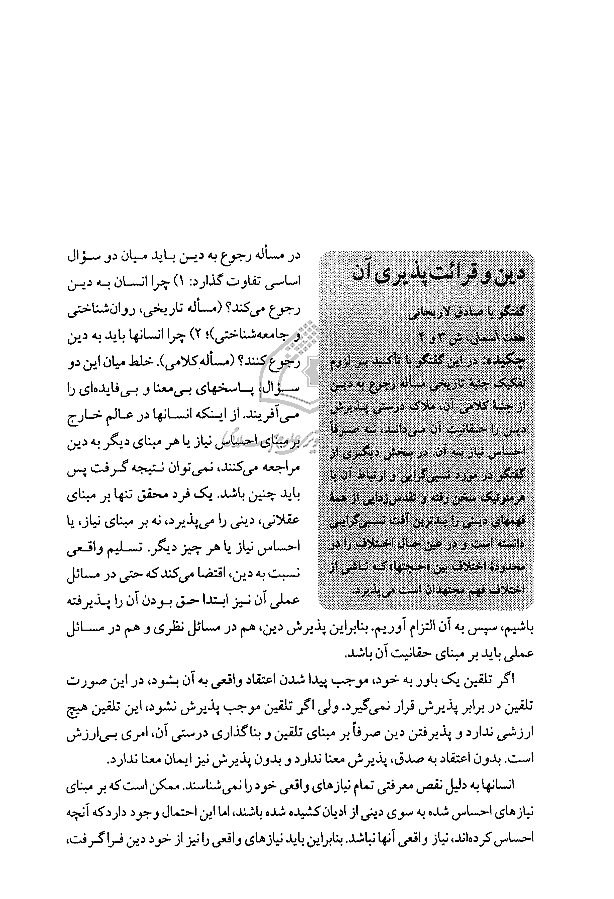 دین و قرائت‌پذیری آن
گفتگو با صادق لاریجانی
هفت آسمان، ش ۳ و ۴
چکیده: در این گفتگو با تأکید بر لزوم
تفکیک جنبة تاریخی مسأله رجوع به دین
از جنبة کلامی آن، ملاک درستی پذیرش
دین را حقانیت آن می‌داند، نه صرفاً
احساس نیاز به آن. در بخش دیگری از
گفتگو در مورد نسبی‌گرایی و ارتباط آن با
هرمنوتیک سخن رفته و تقدس‌زدایی از همة
فهمهای دینی را بدترین آفت نسبی‌گرایی
دانسته است و در عین حال اختلاف را در
محدودة اختلاف بین احتجتها، که ناشی از
اختلاف فهم مجتهدان است می‌پذیرد.
در مسأله رجوع به دین باید میان دو سؤال
اساسی تفاوت گذارد: ۱) چرا انسان به دین
رجوع می‌کند؟ (مسأله تاریخی، روان‌شناختی
و جامعه‌شناختی)؛ ۲) چرا انسانها باید به دین
رجوع کنند؟ (مسأله کلامی). خلط میان این دو
سؤال، پاسخهای بی‌معنا و بی‌فایده‌ای را
می‌آفریند. از اینکه انسانها در عالم خارج
بر مبنای احساس نیاز یا هر مبنای دیگر به دین
مراجعه می‌کنند، نمی‌توان نتیجه گرفت پس
باید چنین باشد. یک فرد محقق تنها بر مبنای
عقلانی، دینی را می‌پذیرد، نه بر مبنای نیاز، یا
احساس نیاز یا هر چیز دیگر. تسلیم واقعی
نسبت به دین، اقتضا می‌کند که حتی در مسائل
عملی آن نیز ابتدا حق بودن آن را پذیرفته
باشیم، سپس به آن التزام آوریم. بنابراین پذیرش دین، هم در مسائل نظری و هم در مسائل
عملی باید بر مبنای حقانیت آن باشد.
اگر تلقین یک باور به خود، موجب پیدا شدن اعتقاد واقعی به آن بشود، در این صورت
تلقین در برابر پذیرش قرار نمی‌گیرد. ولی اگر تلقین موجب پذیرش نشود، این تلقین هیچ
ارزشی ندارد و پذیرفتن دین صرفاً بر مبنای تلقین و بناگذاری درستی آن، امری بی‌ارزش
است. بدون اعتقاد به صدق، پذیرش معنا ندارد و بدون پذیرش نیز ایمان معنا ندارد.
انسانها به دلیل نقص معرفتی تمام نیازهای واقعی خود را نمی‌شناسند. ممکن است که بر مبنای
نیازهای احساس شده به سوی دینی از ادیان کشیده شده باشند، اما این احتمال وجود دارد که آنچه
احساس کرده‌اند، نیاز واقعی آنها نباشد. بنابراین باید نیازهای واقعی را نیز از خود دین فرا گرفت،